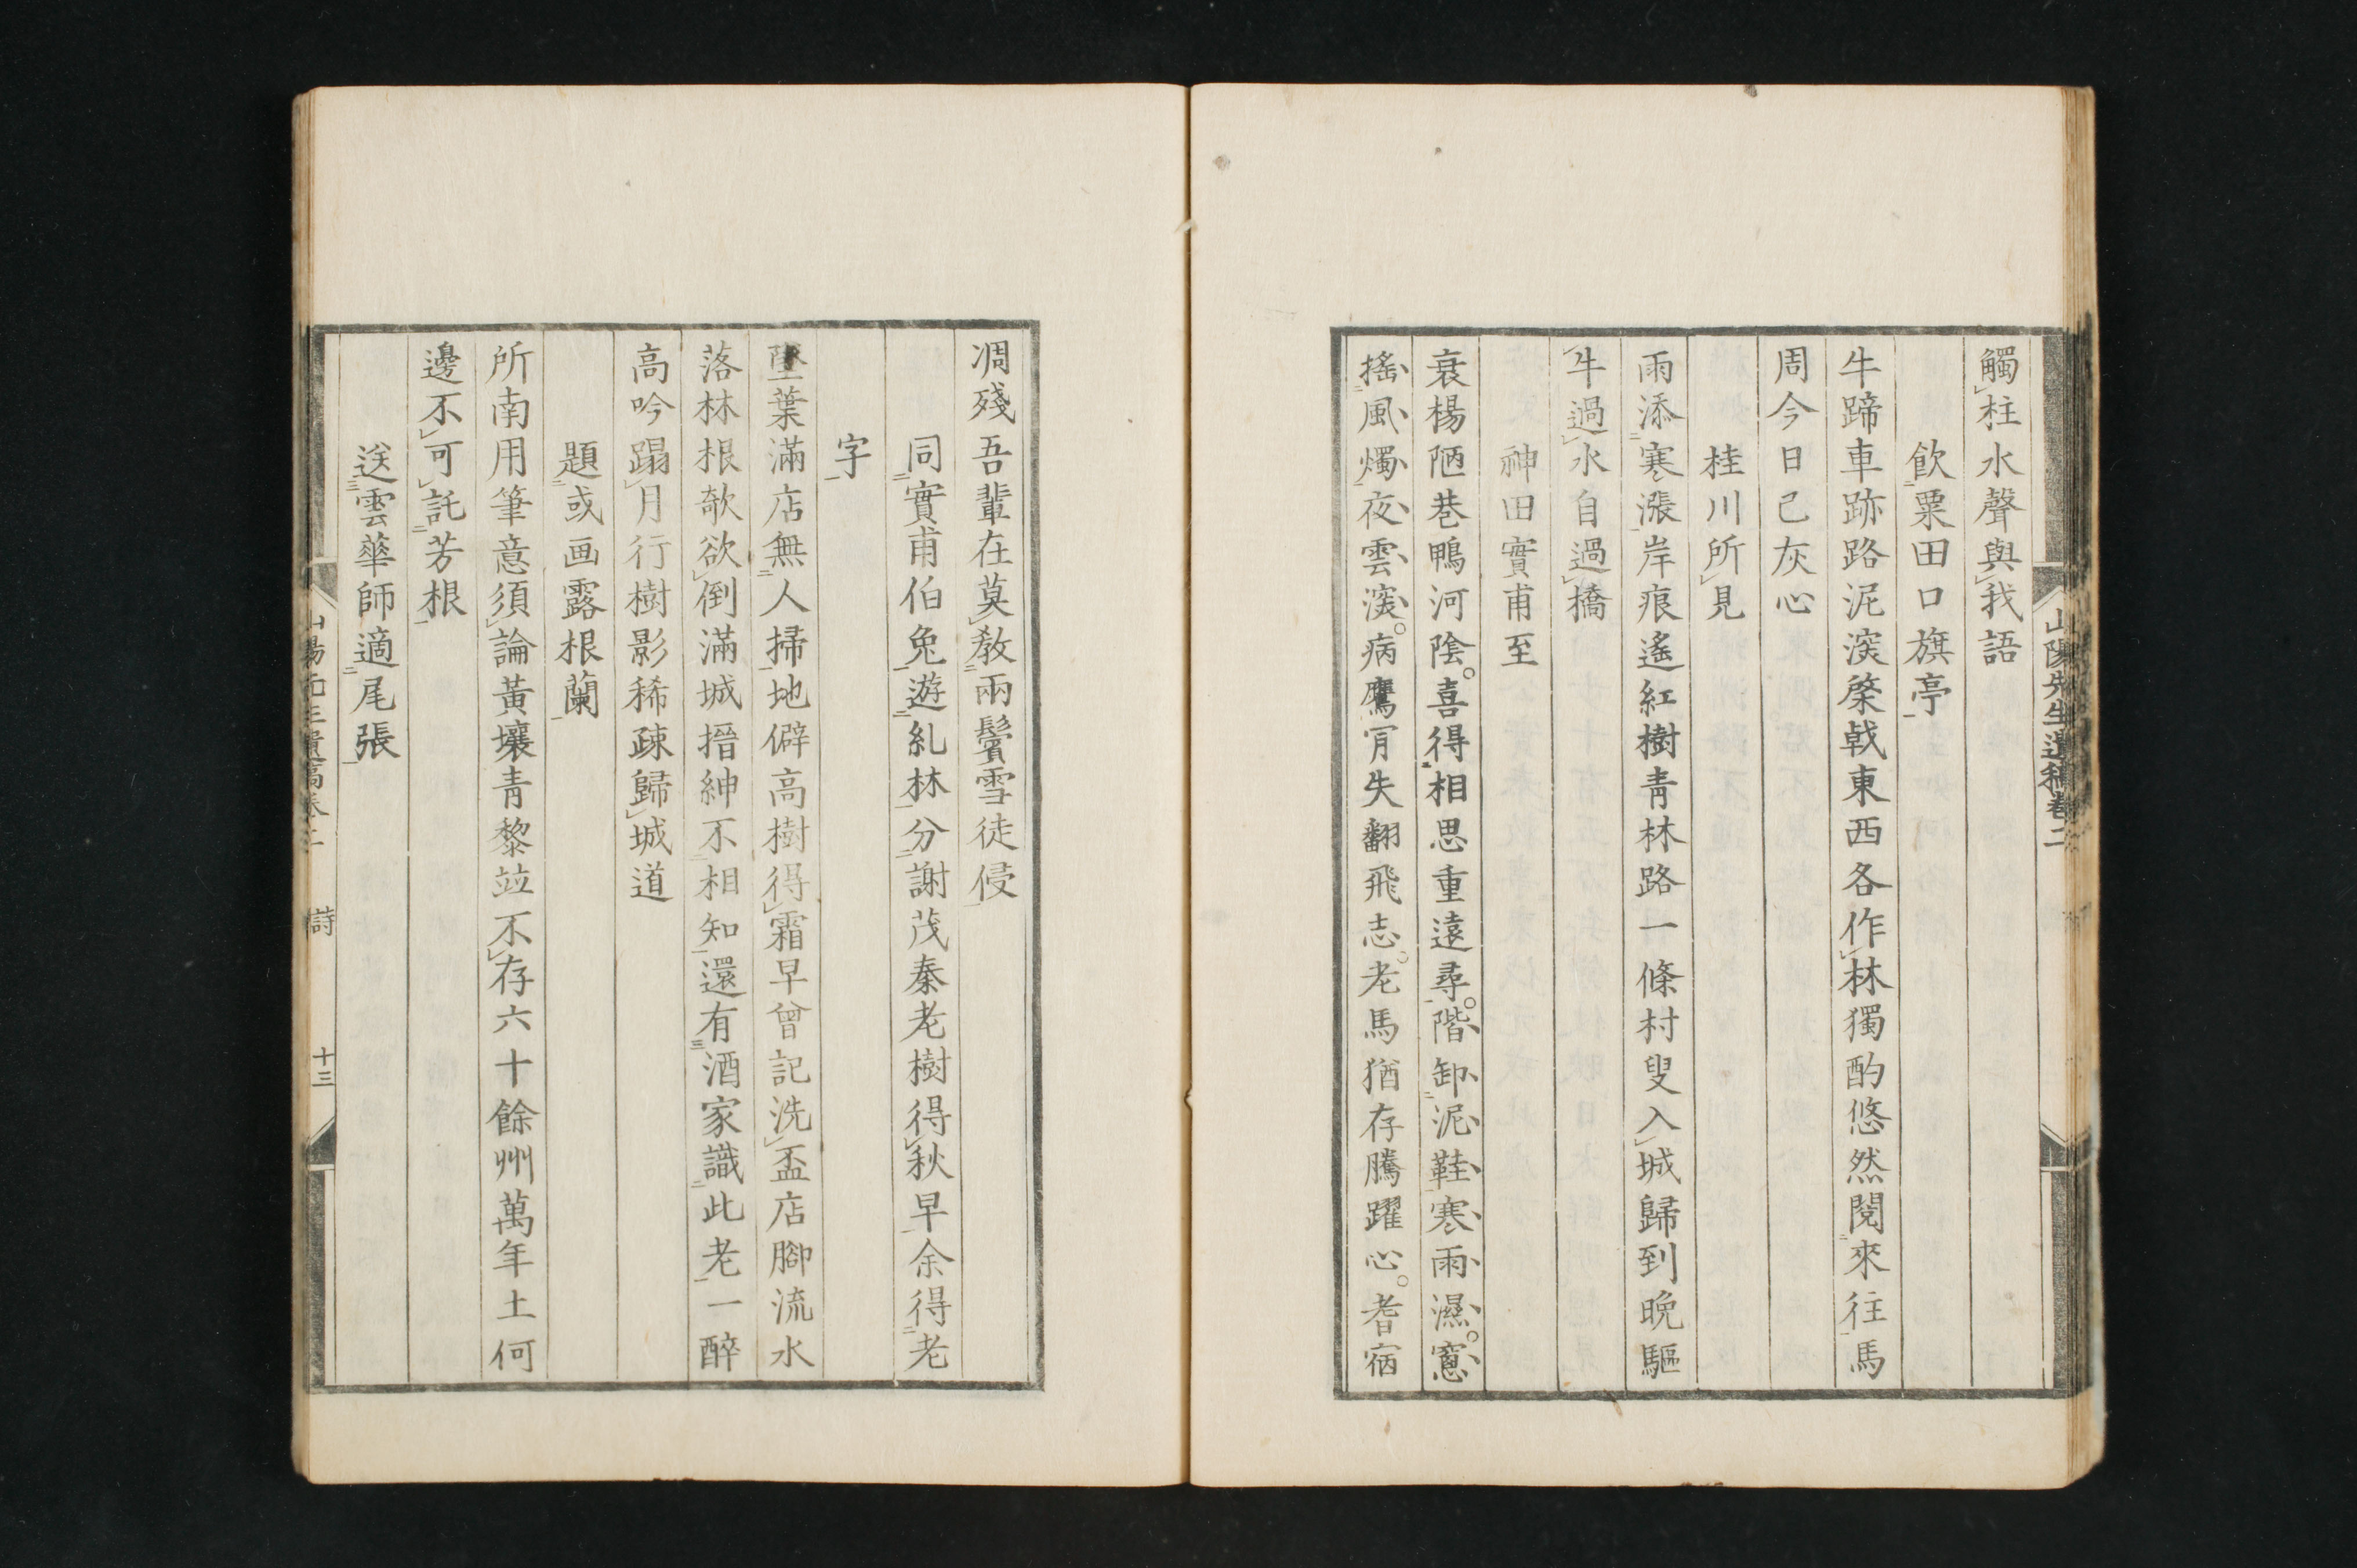 山陽先生遺稿卷二
觸柱水聲與我語
飲粟田口旗亭
牛蹄車跡路泥深棨戟東西各作林獨酌悠然閱來往馬
周今日已灰心
桂川所見
雨添寒漲岸痕遙紅樹青林路一條村叟入城歸到晩驅
牛過水自過橋
神田實甫至
衰楊陋巷鴨河陰。喜得相思重遠尋。階卸泥鞋寒雨濕。窓
搖風燭夜雲深。病鷹肎失翻飛志。老馬猶存騰躍心。耆宿
凋殘吾輩在莫敎兩鬢雪徒侵
同實甫伯兔遊糺林分謝茂秦老樹得秋早余得老
字
墜葉滿店無人掃地僻高樹得霜早曾記洗盃店腳流水
落林根欹欲倒滿城搢紳不相知還有酒家識此老一醉
高吟蹋月行樹影稀疎歸城道
題或画露根蘭
所南用筆意須論黃壤青黎竝不存六十餘州萬年土何
邊不可託芳根
送雲華師適尾張
山陽先生遺稿卷二 詩 十三